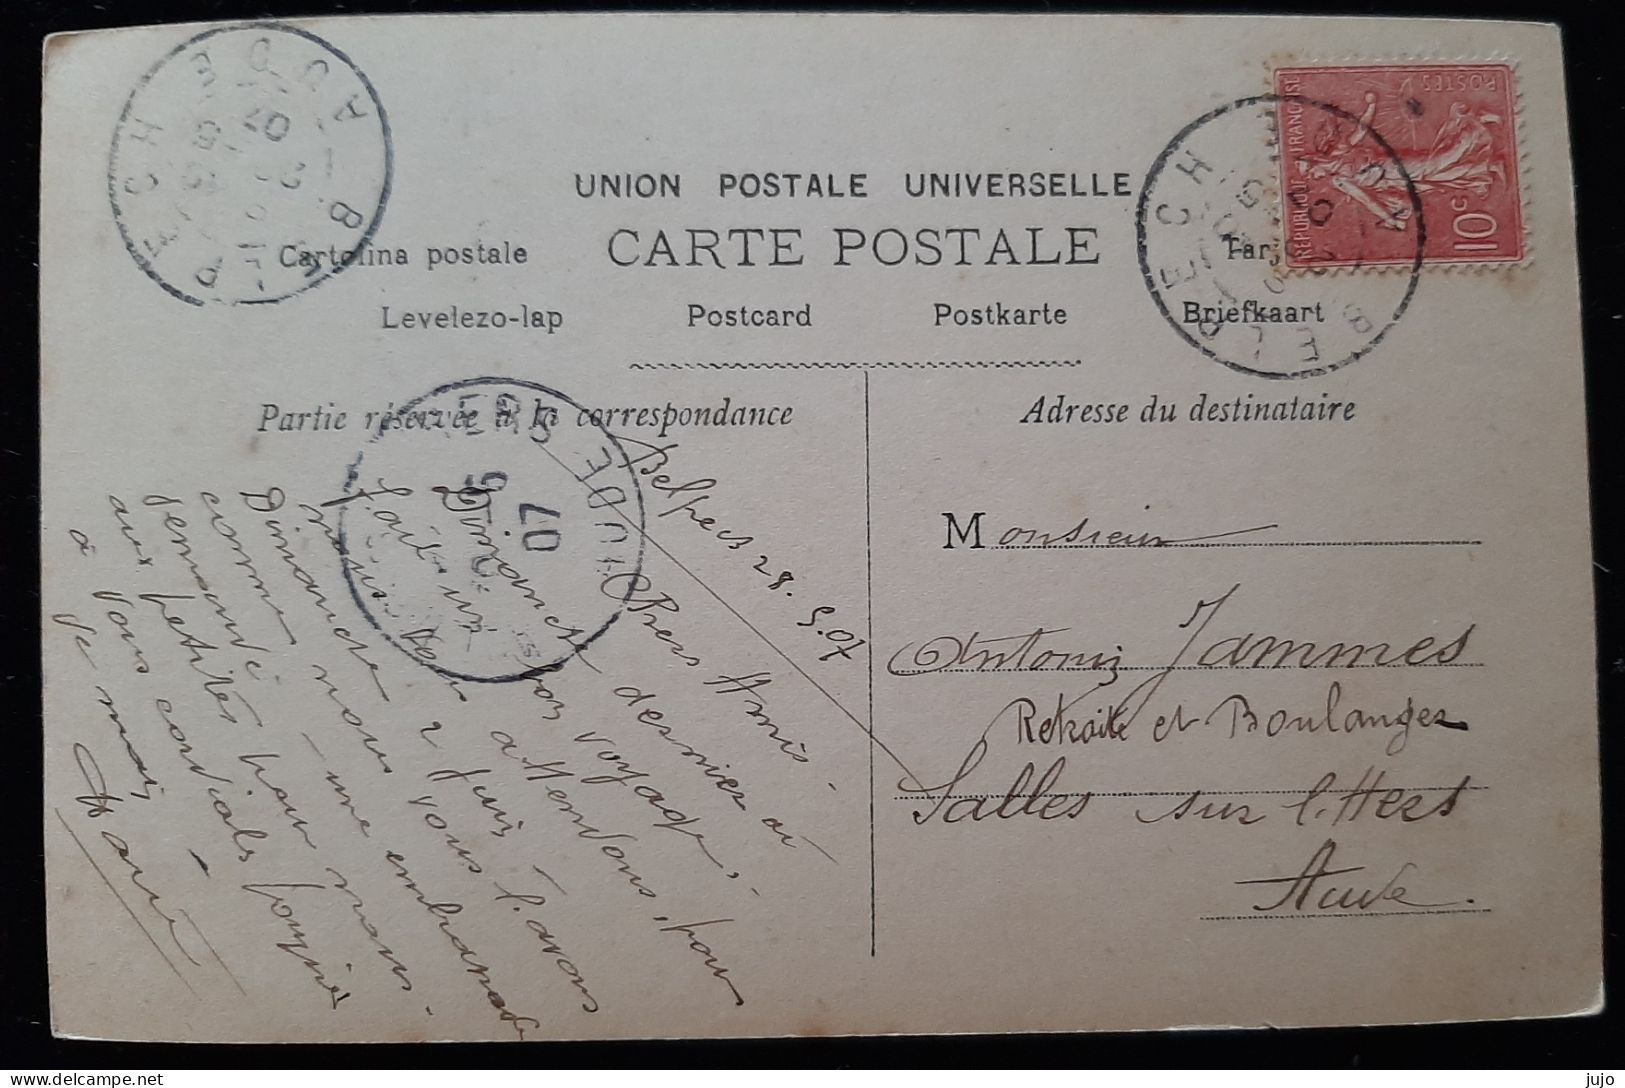 UNION POSTALE UNIVERSELLE
CARTE POSTALE
Cartolina postale
Levelezo-lap Postcard Postkarte Briefkaart
Partie réservée à la correspondance
Adresse du destinataire
BELPECH
AUDE
07
BELPECH
AUDE
07
REPUBLIQUE FRANÇAISE
POSTES
10 c
Belpech 28.5.07
Chers Amis -
Dimanche dernier ai
fait un bon voyage, -
nous vous attendons, pour
Dimanche 2 Juin - l'avons
comme nous vous
demandé - une embrassade
aux petites pour nous -
à vous cordiales poignées
de main -
Monsieur
Antonin Jammes
Retraité et Boulanger
Salles sur l'Hers
Aude.
jujo